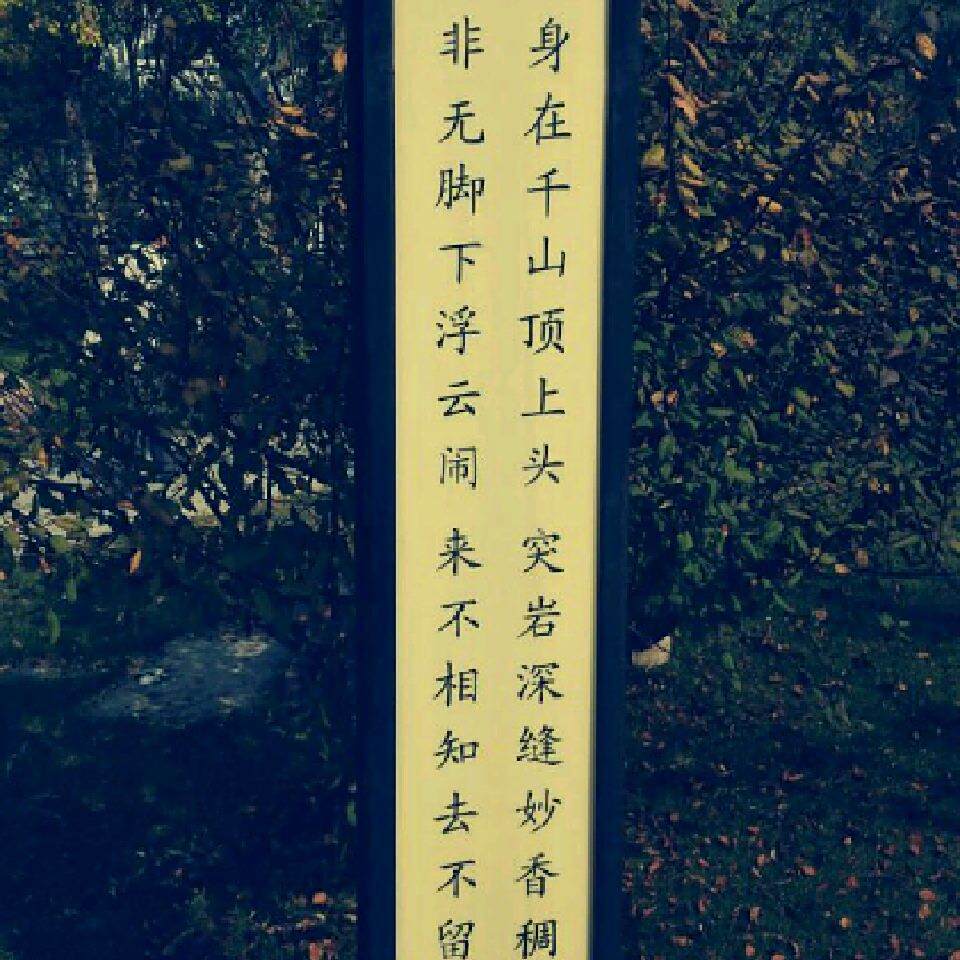 身在千山顶上头突岩深缝妙香稠
非无脚下浮云闹来不相知去不留